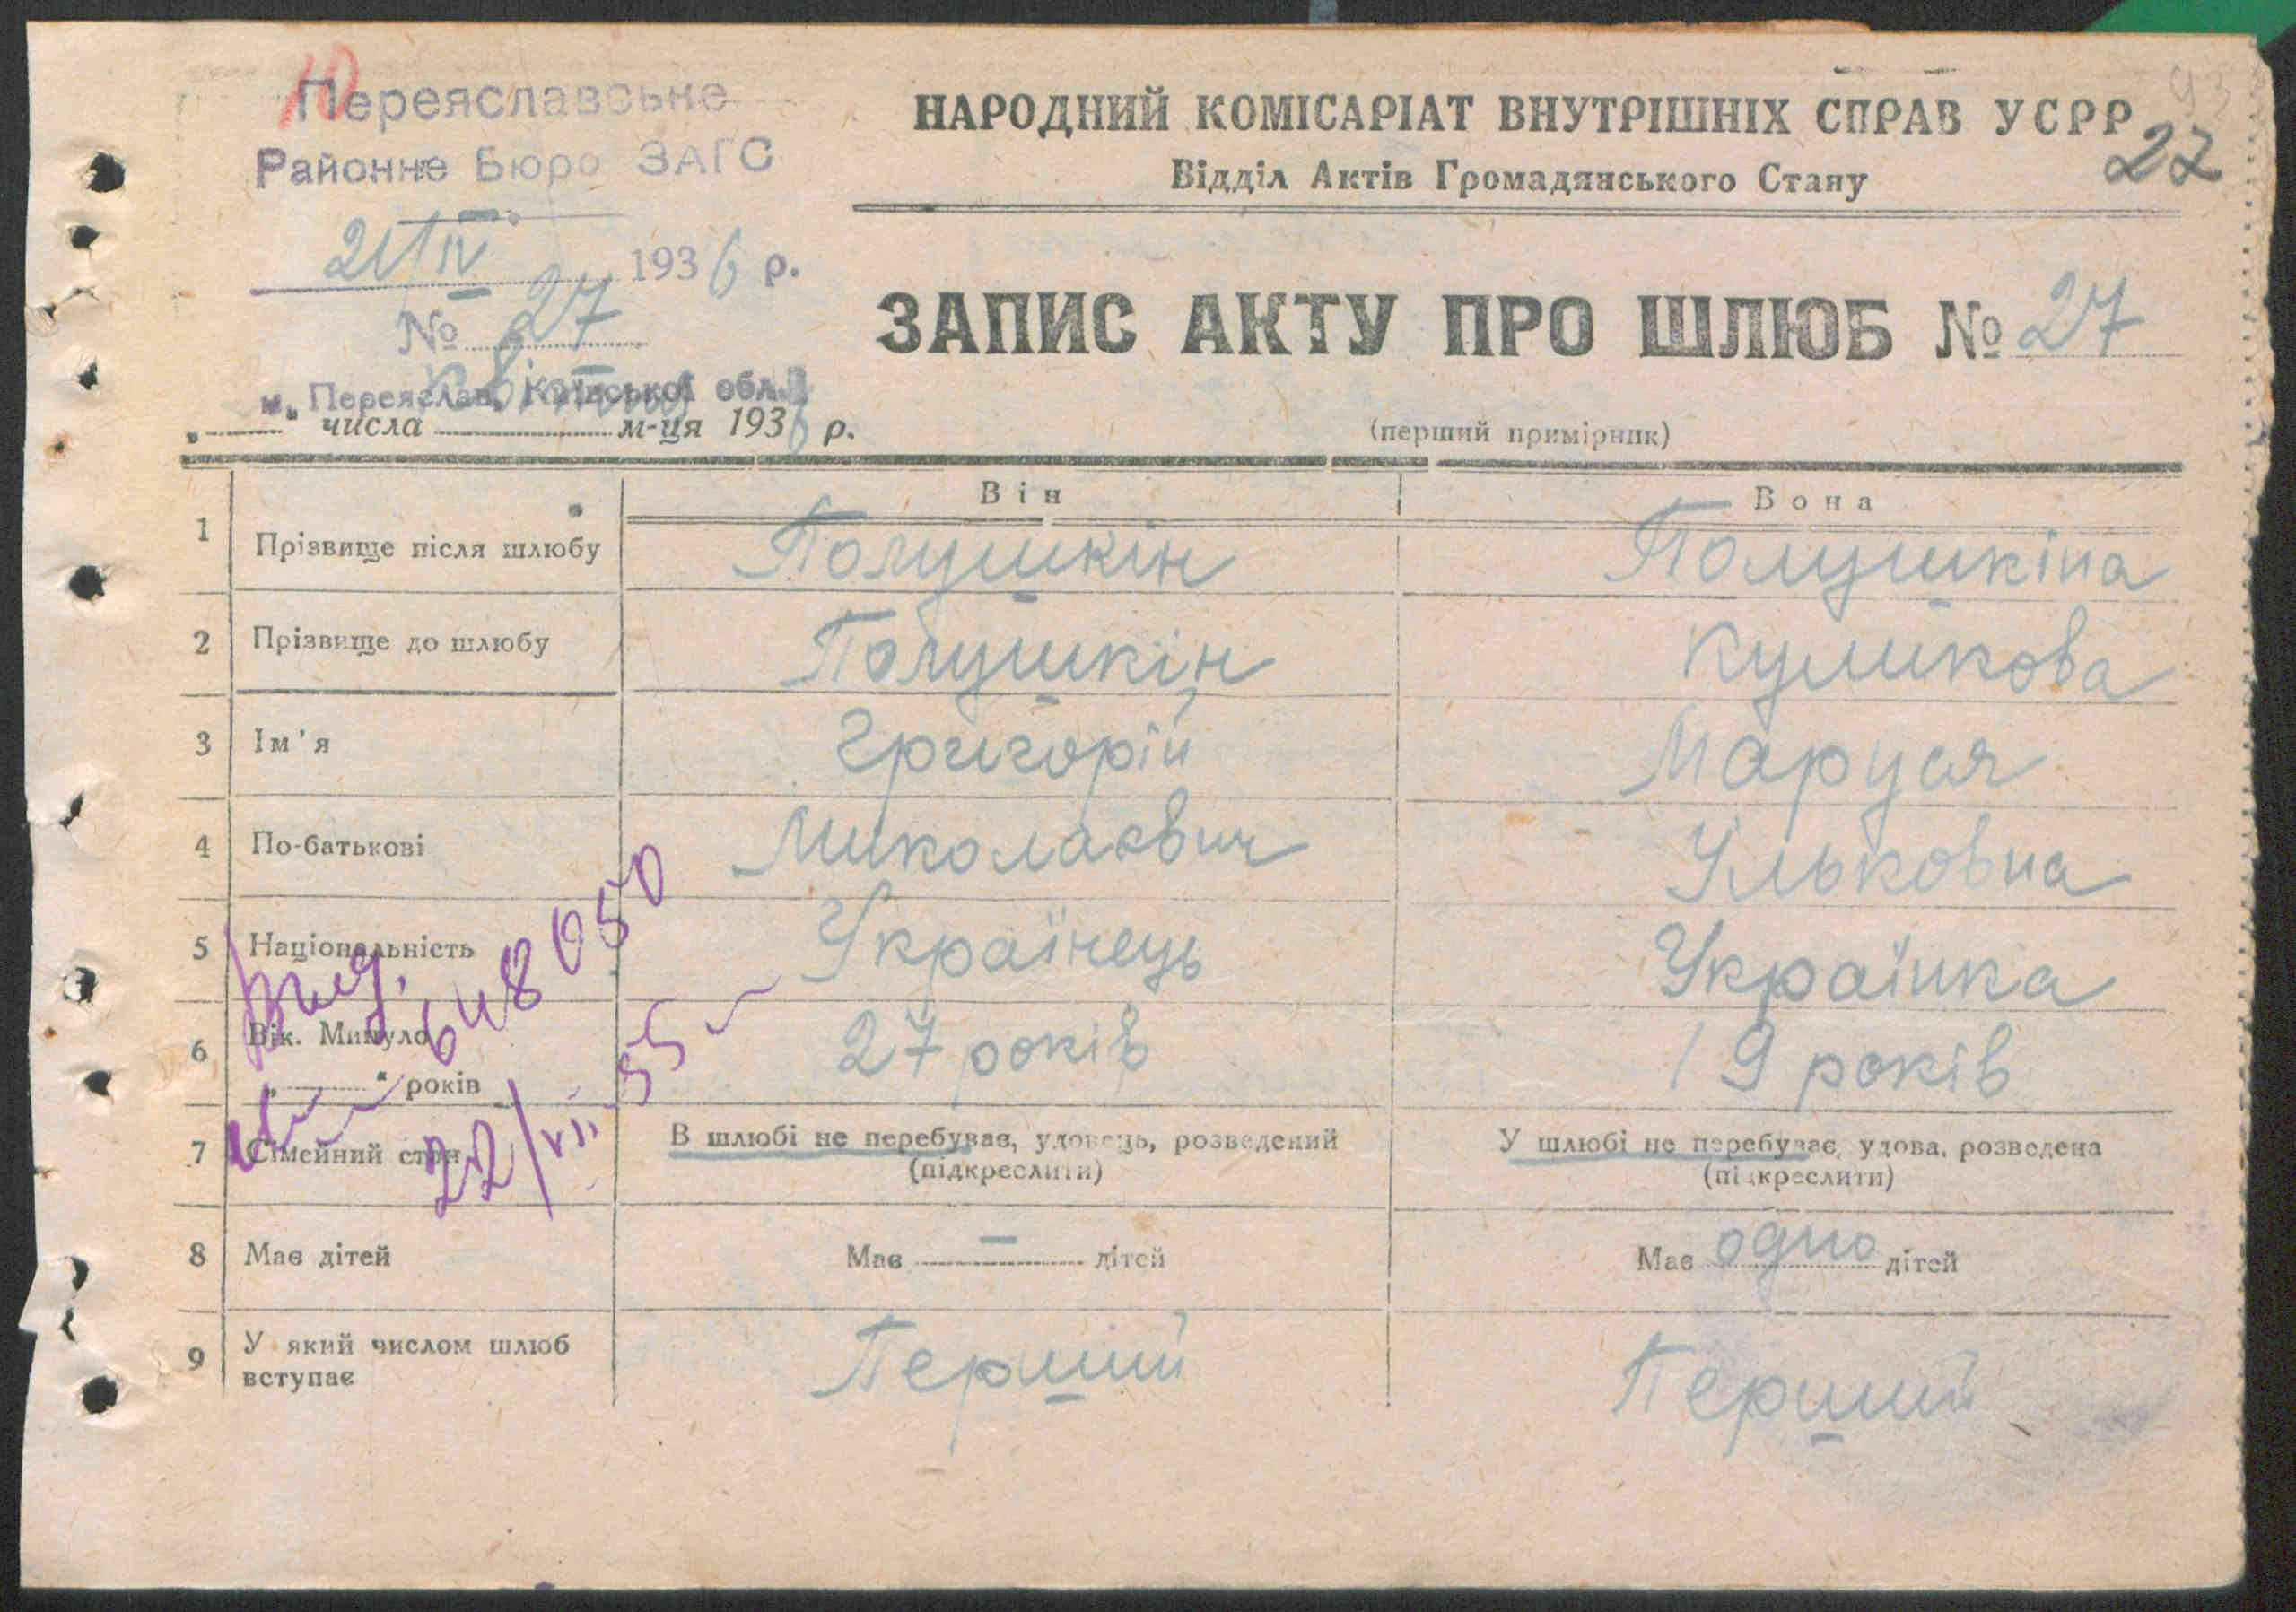 10
Переяславське
Районне Бюро ЗАГС
21/IV 1936 р.
№ 27
м. Переяслав, Київської обл.
" " числа м-ця 1936 р.
93
НАРОДНИЙ КОМІСАРІАТ ВНУТРІШНІХ СПРАВ УСРР
27
Відділ Актів Громадянського Стану
ЗАПИС АКТУ ПРО ШЛЮБ № 27
(перший примірник)
Він Вона
1 Прізвище після шлюбу Полушкін Полушкіна
2 Прізвище до шлюбу Полушкін Куликова
3 Ім'я Григорій Маруся
4 По-батькові Миколаєвич Ульковна
5 Національність Українець Українка
6 Вік. Минуло " " років 27 років 19 років
7 Сімейний стан В шлюбі не перебуває, удовець, розведений (підкреслити) У шлюбі не перебуває, удова, розведена (підкреслити)
8 Має дітей Має — дітей Має одно дітей
9 У який числом шлюб вступає Перший Перший
648050
22/VII 55